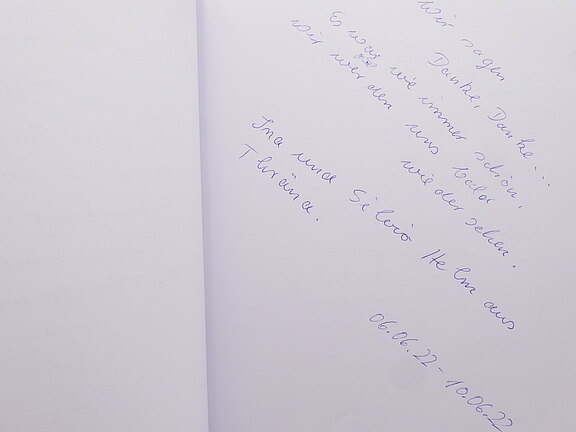 Wir sagen
Danke, Danke...
Es war wie immer schön,
wir werden uns bald
wieder sehen.
Ina und Silvio Helm aus
Thräna.
06.06.22 - 10.06.22